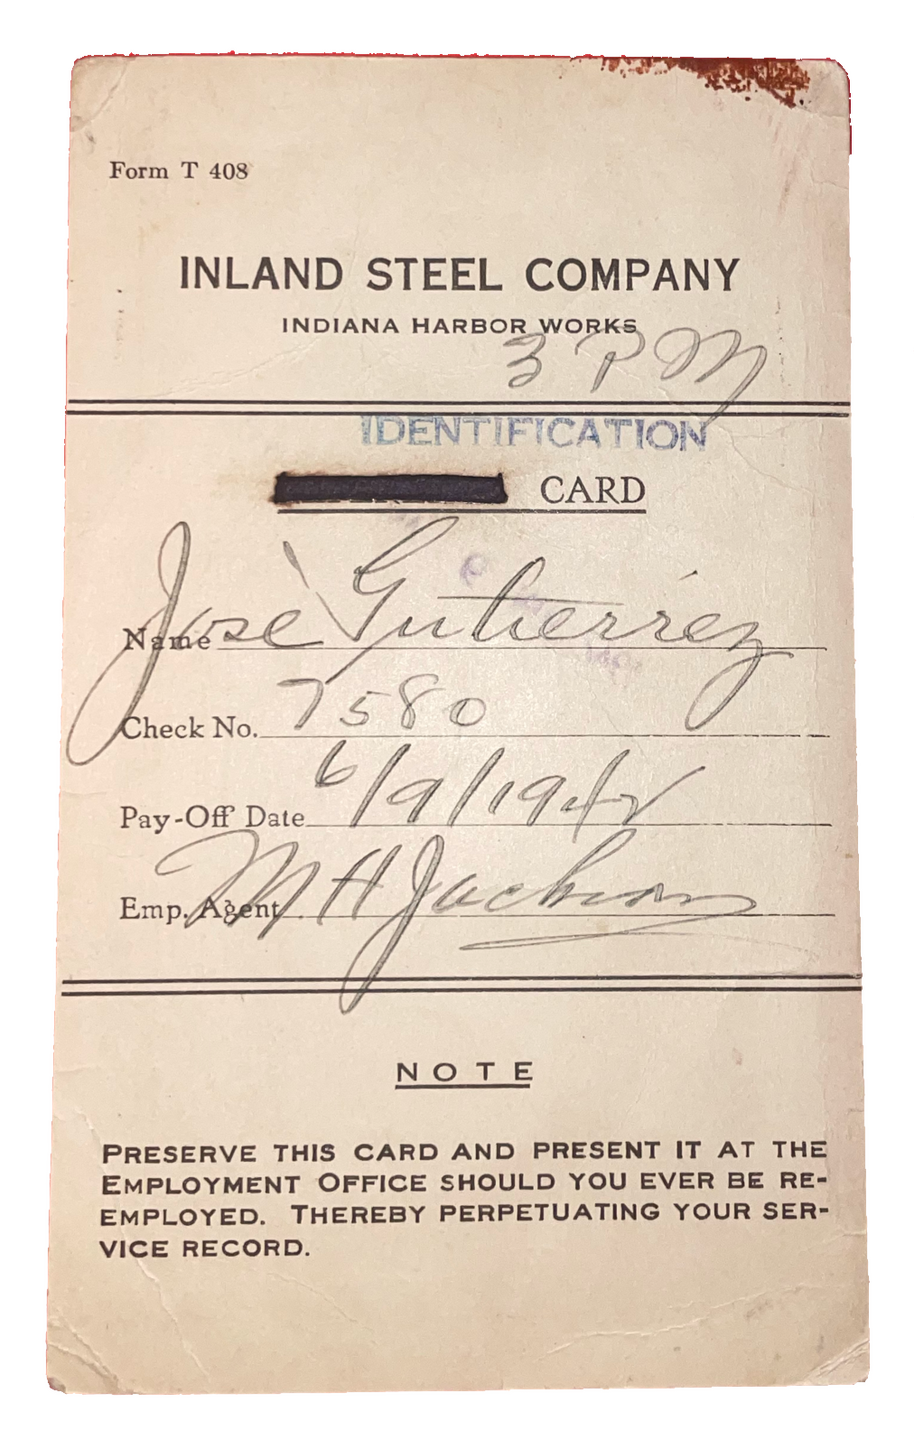 Form T 408
INLAND STEEL COMPANY
INDIANA HARBOR WORKS
3 PM
IDENTIFICATION
CARD
Name José Gutierrez
Check No. 7580
Pay-Off Date 6/9/1942
Emp. Agent M H Jackson
NOTE
PRESERVE THIS CARD AND PRESENT IT AT THE
EMPLOYMENT OFFICE SHOULD YOU EVER BE RE-
EMPLOYED. THEREBY PERPETUATING YOUR SER-
VICE RECORD.